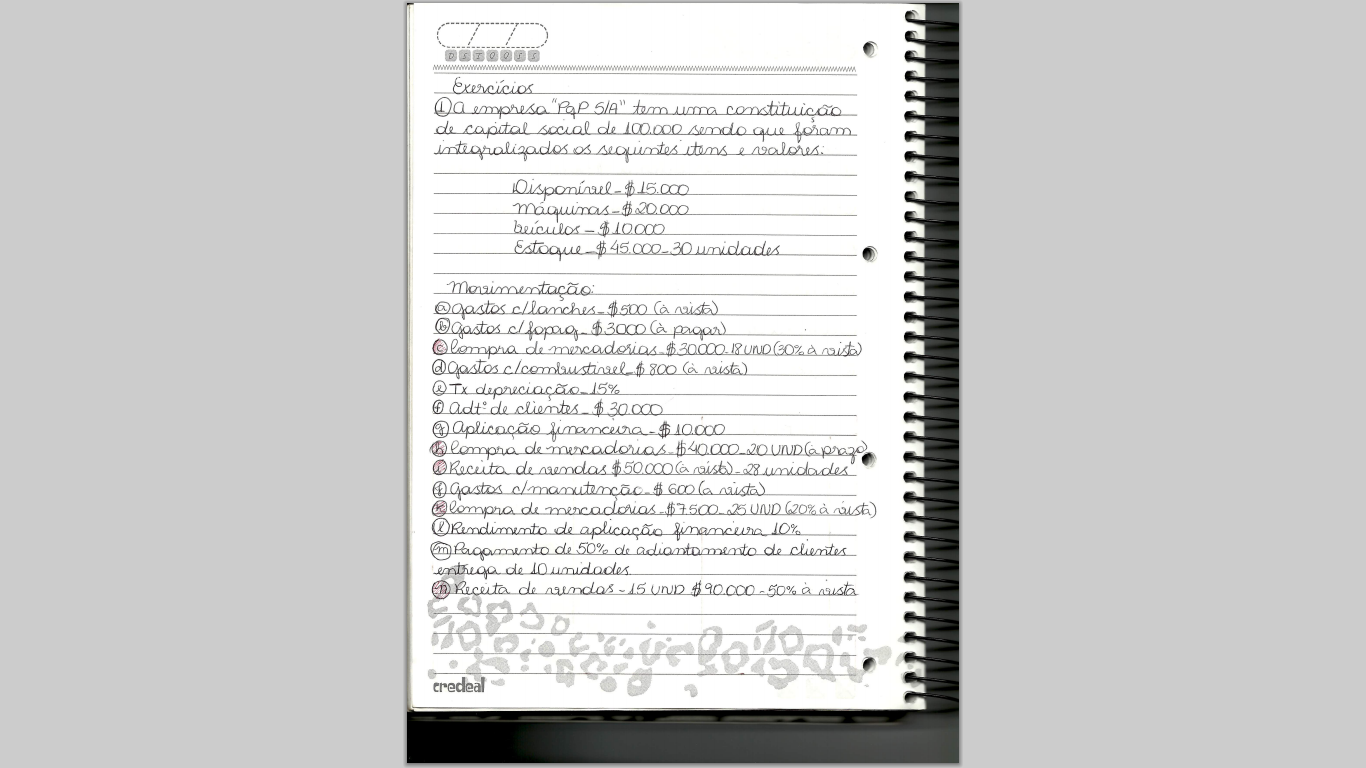 D S T Q Q S S
Exercícios
① A empresa "PqP S/A" tem uma constituição
de capital social de 100.000 sendo que foram
integralizados os seguintes itens e valores:
Disponível - $ 15.000
Máquinas - $ 20.000
Veículos - $ 10.000
Estoque - $ 45.000 - 30 unidades
Movimentação:
ⓐ Gastos c/lanches - $ 500 (à vista)
ⓑ Gastos c/fopag - $ 3000 (à pagar)
ⓒ Compra de mercadorias - $ 30.000 - 18 UND (30% à vista)
ⓓ Gastos c/combustível - $ 800 (à vista)
ⓔ Tx depreciação - 15%
ⓕ Adt° de clientes - $ 30.000
ⓖ Aplicação financeira - $ 10.000
ⓗ Compra de mercadorias - $ 40.000 - 20 UND (à prazo)
ⓘ Receita de vendas $ 50.000 (à vista) - 28 unidades
ⓙ Gastos c/manutenção - $ 600 (a vista)
ⓚ Compra de mercadorias - $ 7.500 - 25 UND (20% à vista)
ⓛ Rendimento de aplicação financeira 10%
ⓜ Pagamento de 50% de adiantamento de clientes
entrega de 10 unidades
ⓝ Receita de vendas - 15 UND $ 90.000 - 50% à vista
credeal